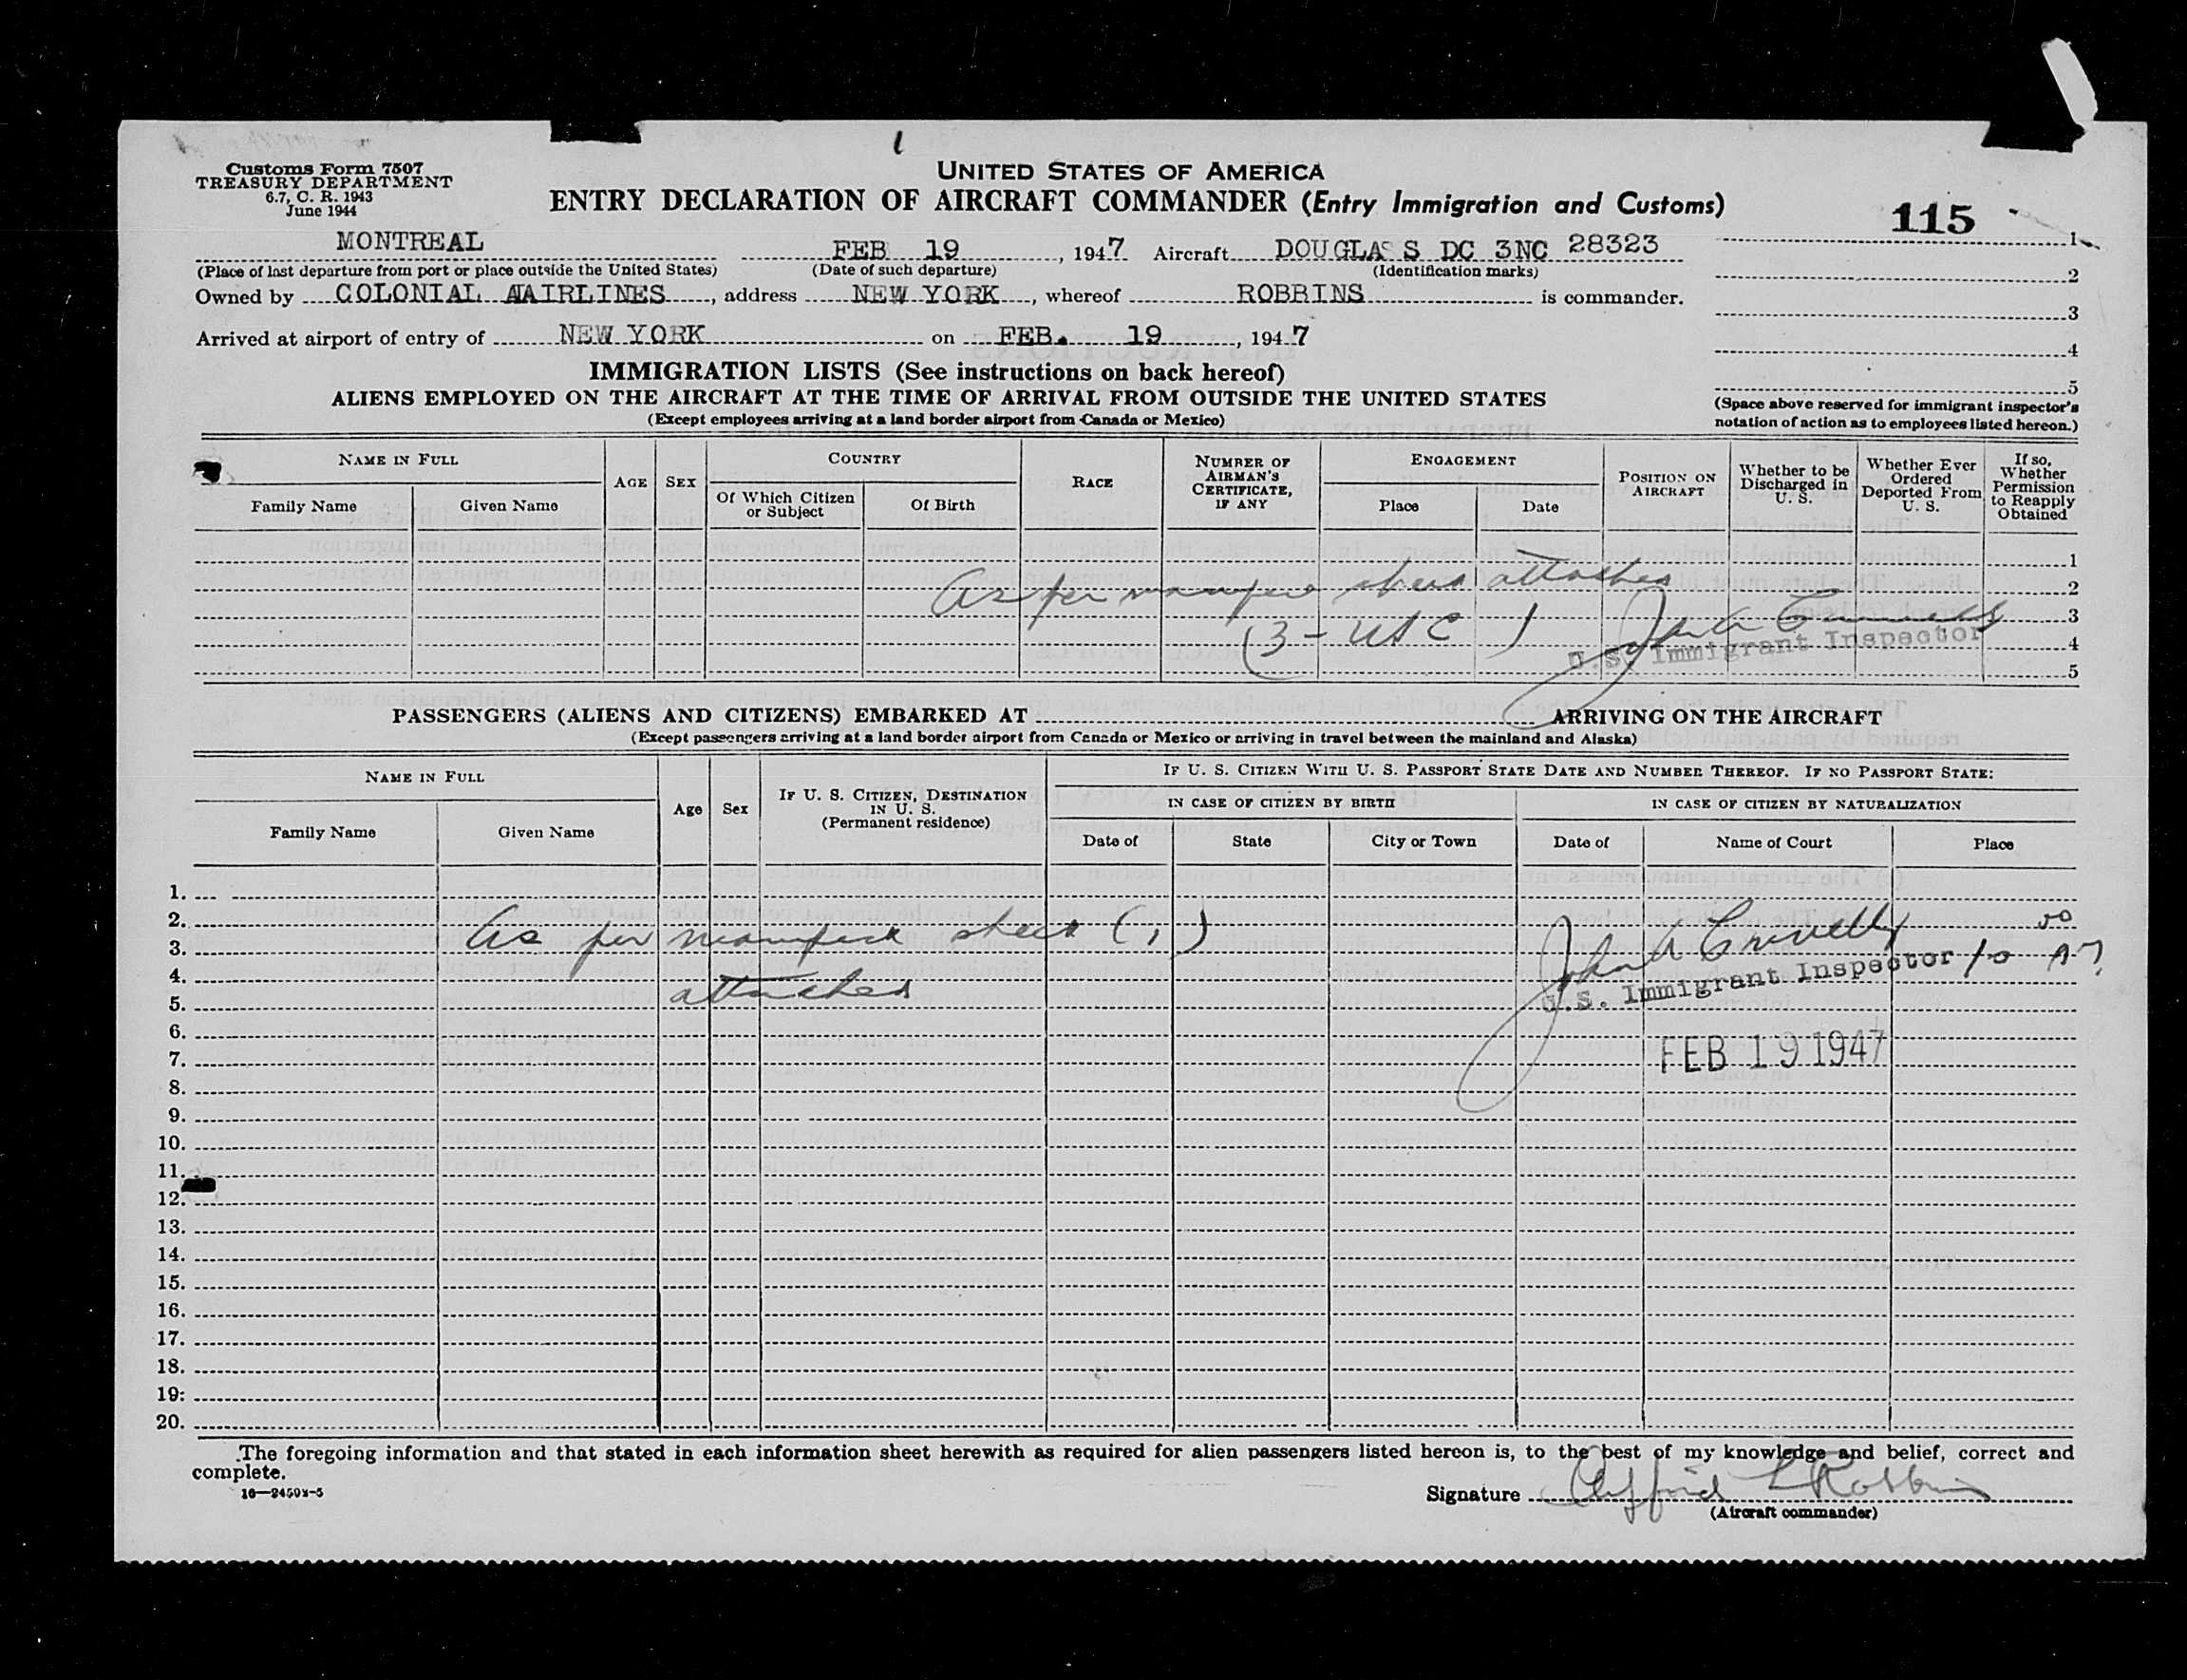 Customs Form 7507
TREASURY DEPARTMENT
6.7, C. R. 1943
June 1944
UNITED STATES OF AMERICA
ENTRY DECLARATION OF AIRCRAFT COMMANDER (Entry Immigration and Customs)
115
MONTREAL FEB 19, 1947 Aircraft DOUGLAS DC 3NC 28323
(Place of last departure from port or place outside the United States) (Date of such departure) (Identification marks)
Owned by COLONIAL AIRLINES, address NEW YORK, whereof ROBBINS is commander.
Arrived at airport of entry of NEW YORK on FEB. 19, 1947
1
2
3
4
5
(Space above reserved for immigrant inspector's
notation of action as to employees listed hereon.)
IMMIGRATION LISTS (See instructions on back hereof)
ALIENS EMPLOYED ON THE AIRCRAFT AT THE TIME OF ARRIVAL FROM OUTSIDE THE UNITED STATES
(Except employees arriving at a land border airport from Canada or Mexico)
NAME IN FULL
Family Name
Given Name
AGE
SEX
COUNTRY
Of Which Citizen
or Subject
Of Birth
RACE
NUMBER OF
AIRMAN'S
CERTIFICATE,
IF ANY
ENGAGEMENT
Place
Date
POSITION ON
AIRCRAFT
Whether to be
Discharged in
U. S.
Whether Ever
Ordered
Deported From
U. S.
If so,
Whether
Permission
to Reapply
Obtained
1
2
3
4
5
As per manifest sheet attached
(3 - USC)
U.S. Immigrant Inspector
PASSENGERS (ALIENS AND CITIZENS) EMBARKED AT ARRIVING ON THE AIRCRAFT
(Except passengers arriving at a land border airport from Canada or Mexico or arriving in travel between the mainland and Alaska)
NAME IN FULL
Family Name
Given Name
Age
Sex
IF U. S. CITIZEN, DESTINATION
IN U. S.
(Permanent residence)
IF U. S. CITIZEN WITH U. S. PASSPORT STATE DATE AND NUMBER THEREOF. IF NO PASSPORT STATE:
IN CASE OF CITIZEN BY BIRTH
Date of
State
City or Town
IN CASE OF CITIZEN BY NATURALIZATION
Date of
Name of Court
Place
1.
2.
3.
4.
5.
6.
7.
8.
9.
10.
11.
12.
13.
14.
15.
16.
17.
18.
19.
20.
As per manifest sheet (1)
attached
John A
U.S. Immigrant Inspector
FEB 19 1947
The foregoing information and that stated in each information sheet herewith as required for alien passengers listed hereon is, to the best of my knowledge and belief, correct and
complete.
Signature Clifford L Robbins
(Aircraft commander)